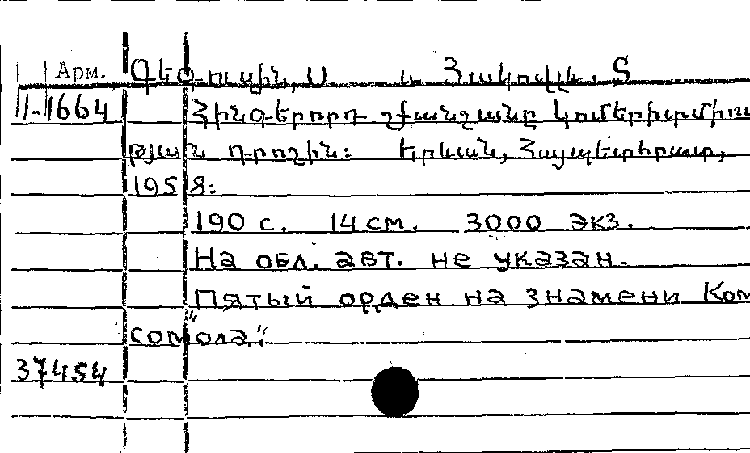 Арм. Գեօ-ուսին, Ս. և Հակոփյն, Տ
II-1664 Հինգերորդ շքանշանը կոմերիտմիու
թյան դրոշին: Երևան, Հայպետհրատ,
1958:
190 с. 14 см. 3000 экз.
На обл. авт. не указан.
"Пятый орден на знамени Ком
сомола".
37454